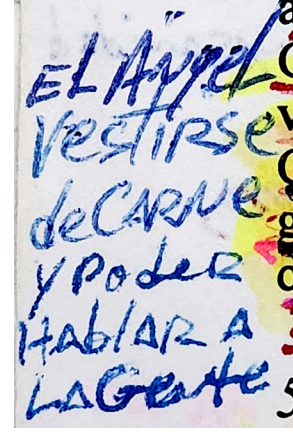 EL Ángel
Vestirse
de CARNE
y Poder
HAblAR A
LA Gente